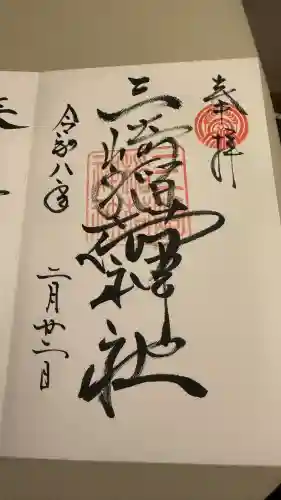 奉拝
三崎稲荷神社
令和八年
二月廿二日